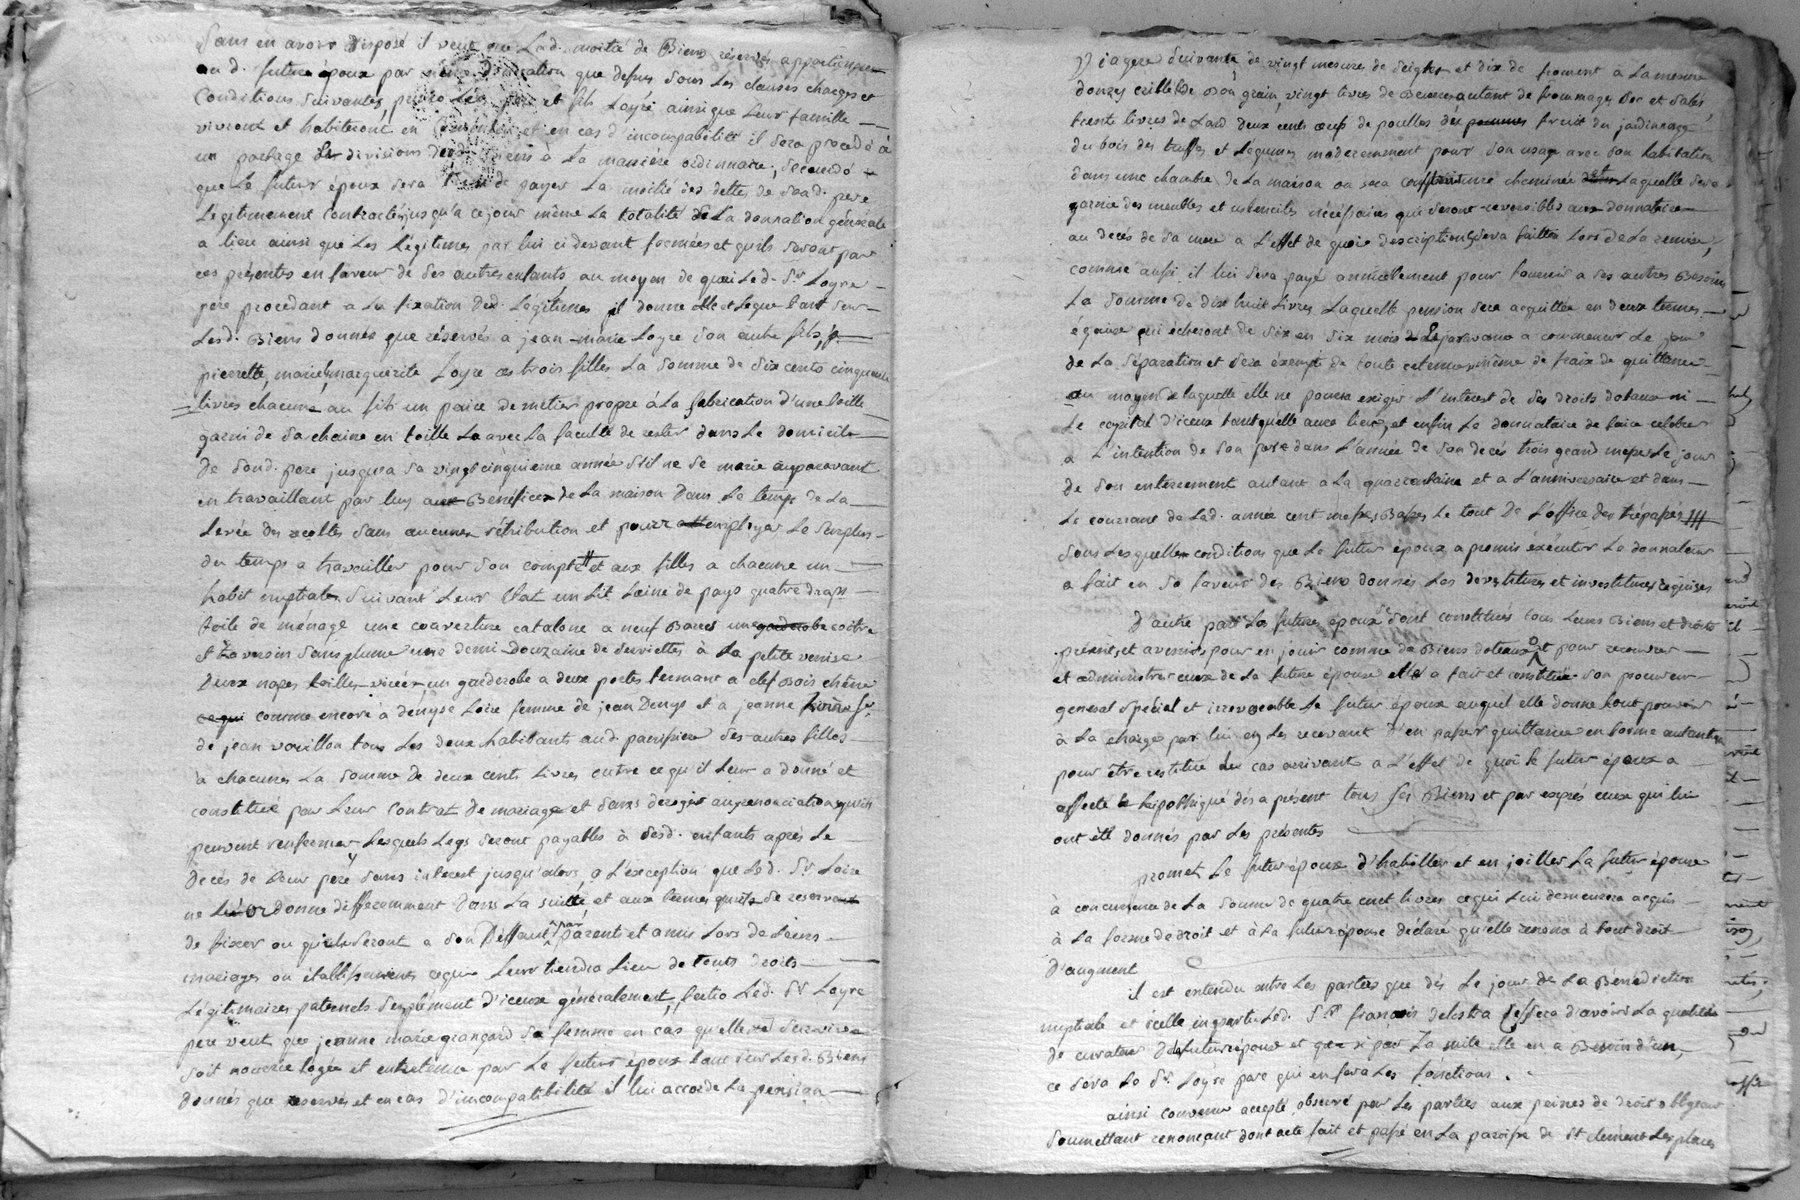 Sans en avoir disposé il veut que Lad. moitié de Biens réservés appartienne
au d. futur époux par donnation que dessus sous Les clauses charges et
Conditions suivantes, primo Les père et fils Loyre ainsi que Leur famille
vivront et habiteront en et en cas d'incompatibilité il sera procedé à
un partage divisions desd. Biens à La manière ordinaire, Secundo
que Le futur époux sera de payer La moitié des dettes de sond. pere
Legitimement contractées jusqu'a ce jour même La totalité si La donnation générale
a lieu ainsi que Les Légitimes par lui ci devant formées et qu'ils seront par
ces présentes en faveur de ses autres enfants, au moyen de quoi Led. Sr. Loyre
pere procedant a La fixation desd. Legitimes il donne et Legue tant sur
Lesd. Biens donnés que réservés a jean-marie Loyre son autre fils, à
pierrette, marie, marguerite Loyre ses trois filles La somme de six cents cinquante
livres chacune au fils un paire de métier propre à La fabrication d'une toille
garni de sa chaine en toille avec La faculté de rester dans Le domicile
de sond. pere jusqu'a sa vingt cinquieme année s'il ne se marie auparavant
en travaillant par luy Benefice de La maison Dans Le temps de La
Levée des recoltes sans aucunes rétribution et pourra employer Le Surplus
du temps a travailler pour son compte et aux filles a chacune un
habit nuptial suivant Leur Etat un Lit Laine de pays quatre draps
toile de ménage une couverture catalone a neuf Barres une garderobe coitre
et traversin sans plume une demi-Douzaine de serviettes à La petite venise
Deux napes un garderobe a deux portes fermant a clef Bois chêne
ce qui comme encore à denyse Loire femme de jean Denys et a jeanne
de jean vouillon tous Les deux habitants aud. parroisse ses autres filles
à chacunes La somme De deux cents Livres outre ce qu'il Leur a donné et
constitué par Leur Contrat De mariage et sans deroger aux renonciations qu'ils
peuvent renfermer Lesquels Legs seront payables à sesd. enfants après Le
Decés de Leur père sans interet jusqu'alors, a L'exception que Led. Sr. Loire
ne Donne differemment Dans La suitte, et aux termes qu'il se reservent
de fixer ou qui le seront a son Deffaut par parents et amis Lors de Leurs
mariages ou établissements ce qui Leur tiendra Lieu de touts droits
Légitimaires paternels suplément d'iceux généralement, Led. Sr. Loyre
pere veut que jeanne marie grangard sa femme en cas qu'elle Survive
soit nourrie logée et entretenue par Le futur époux tant sur Lesd. Biens
donnés que reservés et en cas d'incompatibilité il lui accorde La pension
Viagere suivante, de vingt mesures de seigle et dix de froment à La mesure
donzy criblé Bon grain, vingt livres de Beurre autant de frommages Sec et salés
trente livres de Lard deux cents œufs de poulles des pommes fruit du jardinnage
du bois des truffes et Légumes moderemment pour son usage avec son habitation
dans une chambre de La maison ou sera construit une cheminée Laquelle sera
garnie des meubles et ustenciles nécessaires qui seront reversibles aux donnataire
au decès de sa mere a L'effet de quoi description sera faitte Lors De La remise,
comme aussi il lui sera payé annuellement pour fournir a ses autres Besoins
La somme de dix huit Livres Laquelle pension sera acquittée en deux termes
égaux qui echeront de six en six mois et par avance a commencer Le jour
de La séparation et sera exempte de toute retenue même de fraix de quittance
au moyen de laquelle elle ne pourra exiger L'interet de ses droits dotaux ni
Le capital d'iceux tant quelle aura lieu, et enfin Le donnataire de faire celebrer
a L'intention de son pere dans L'année de son decés trois grand messes Le jour
de son enterrement autant à La quarantaine et a L'anniversaire et dans
Le courant de Lad. année cent messes Basses Le tout De L'office des trépassés
Sous Lesquelles conditions que Le futur époux a promis éxécuter Le donnateur
a fait en sa faveur des Biens donnés Les devetitures et investitures requises
D'autre part La future épouse s'est constitués tous Leurs Biens et droits
présents, et avenir, pour en jouir comme de Biens dotaux et pour recouvrer
et administrer ceux de La future épouse elle a fait et constitué son procureur
general special et irrevocable Le futur époux auquel elle donne tout pouvoir
à La charge par lui en Les recevant d'en passer quittance en forme autentique
pour être restitué Les cas arrivants a L'effet de quoi Le futur époux a
affecté hipothiqué dés a présent tous ses Biens et par exprés ceux qui lui
ont été donnés par Les présentes
promet Le futur époux d'habiller et en joiller La futur épouse
à concurence de La somme de quatre cent livres ce qui Lui demeurera acquis
à La forme de droit et à La future épouse déclaré qu'elle renonce à tout droit
d'augment
il est entendu entre Les parties que dés Le jour de La Benediction
nuptiale et icelle impartie Led. Sr. françois delestra cessera d'avoir La qualité
de curateur de La future épouse et que si par La suite elle en a Besoin d'un,
ce sera Le Sr. Loyre pere qui en fera Les fonctions.
ainsi convenu accepté observé par Les parties aux peines de droit obligeant
soumettant renonçant dont acte fait et passé en La paroisse de St clement Les places